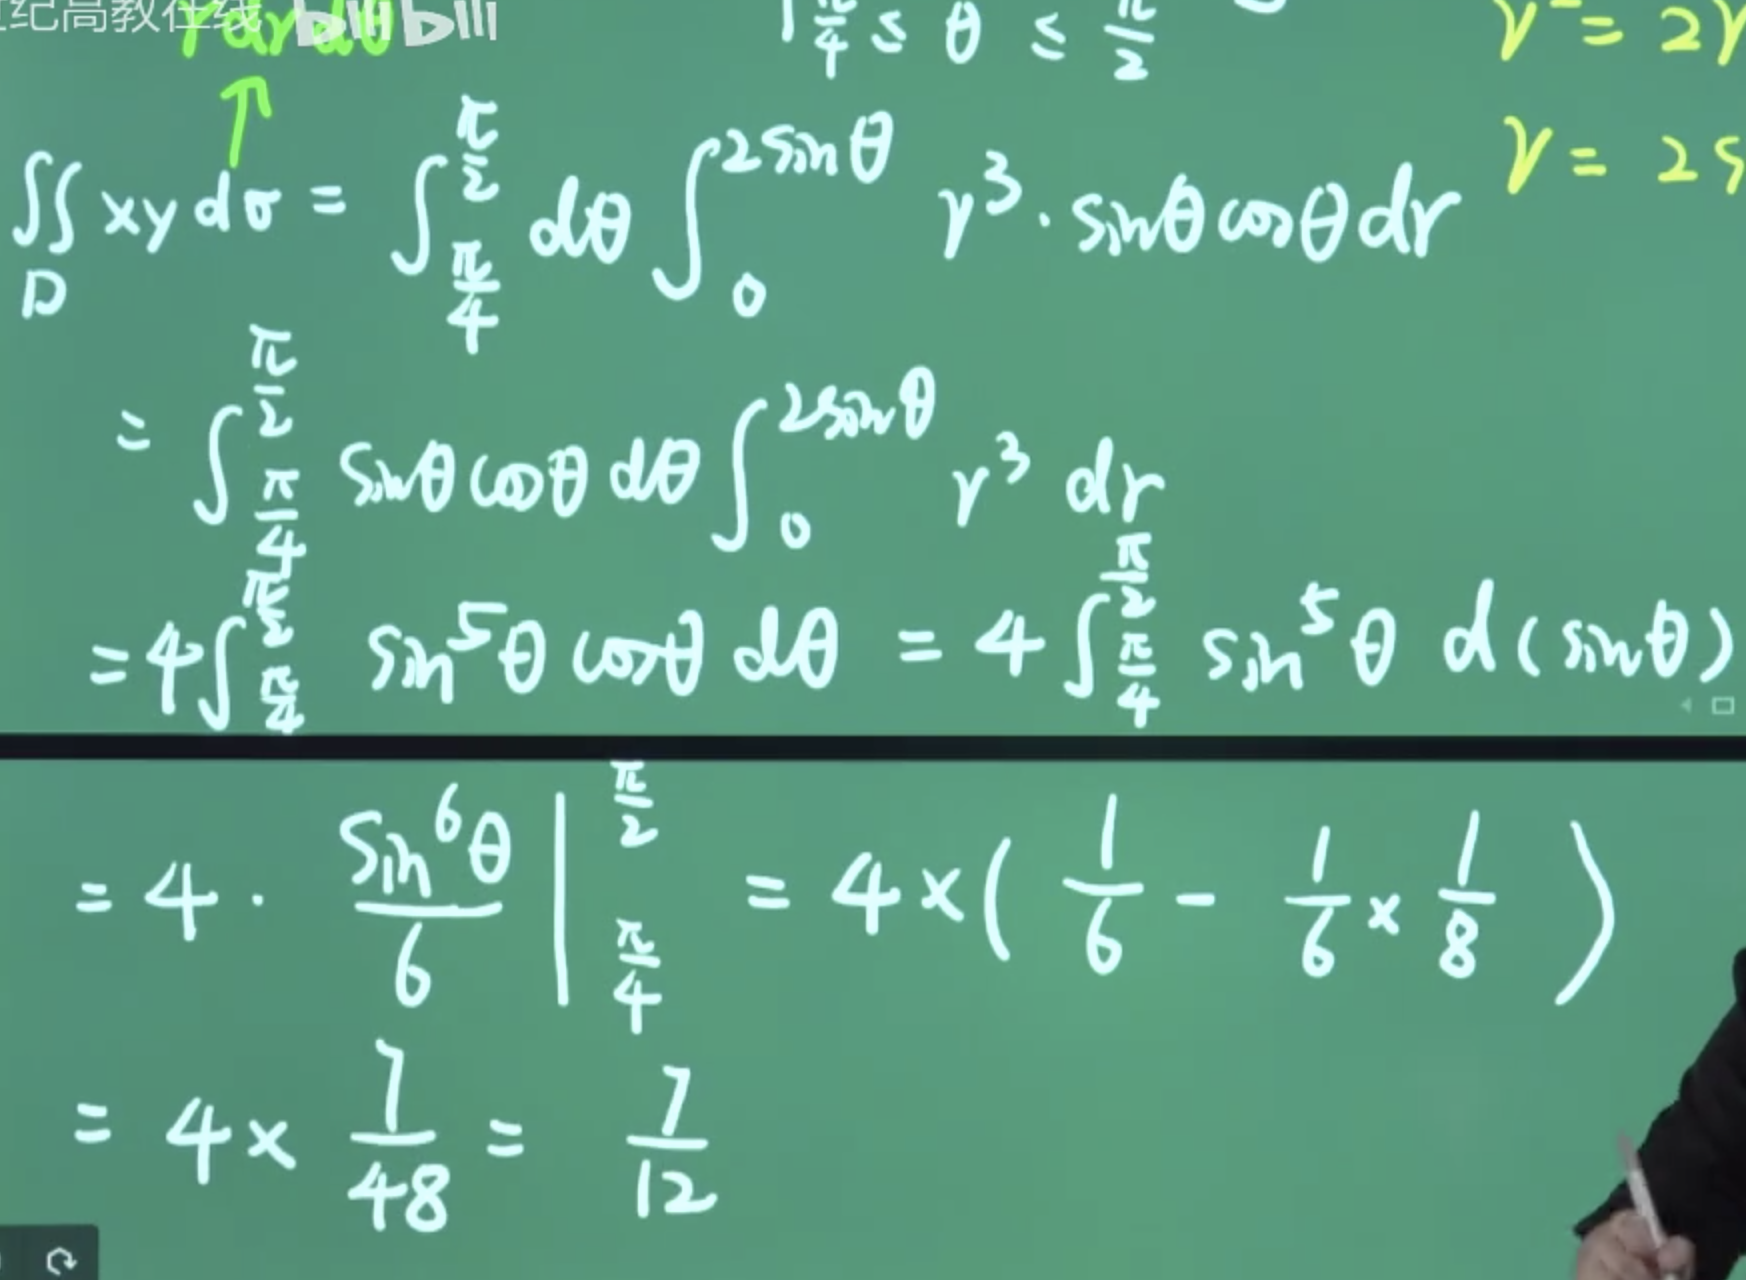 纪高教在线 bilibili
rdrdθ
π/4 ≤ θ ≤ π/2
= 2r
r = 2s
∬_D xy dσ = ∫_{π/4}^{π/2} dθ ∫_0^{2sinθ} r³·sinθcosθdr
= ∫_{π/4}^{π/2} sinθcosθdθ ∫_0^{2sinθ} r³ dr
= 4∫_{π/4}^{π/2} sin⁵θcosθdθ = 4∫_{π/4}^{π/2} sin⁵θ d(sinθ)
= 4 · sin⁶θ/6 |_{π/4}^{π/2} = 4×(1/6 - 1/6 × 1/8)
= 4 × 7/48 = 7/12